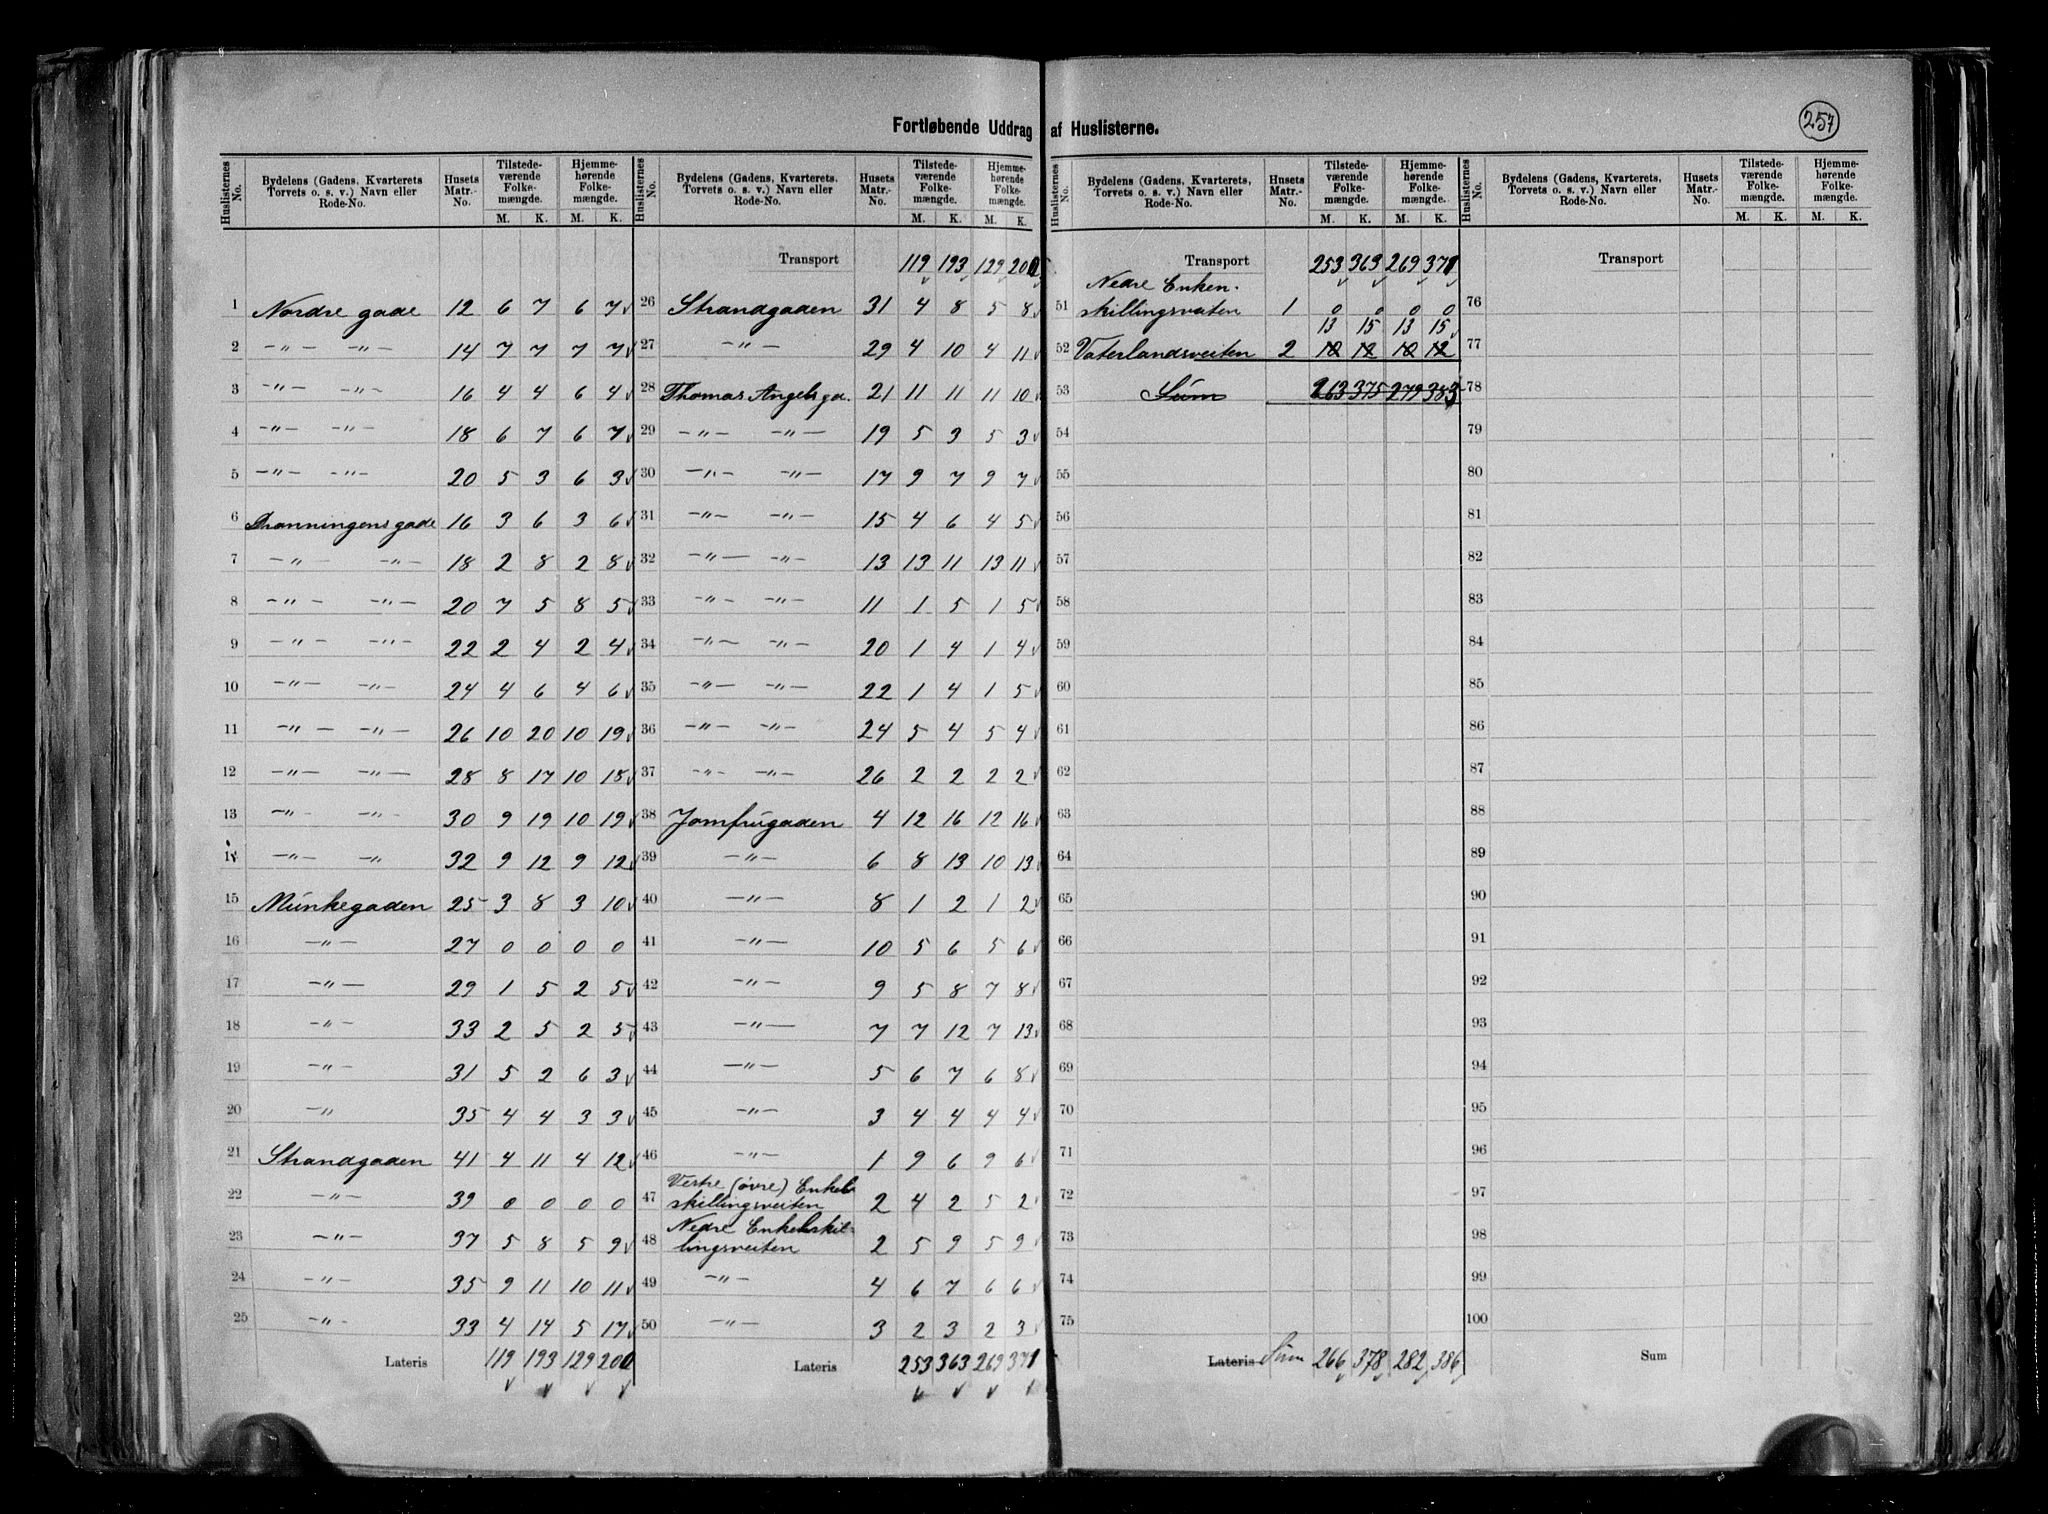 Fortløbende Uddrag af Huslisterne.
257
Huslisternes No. | Bydelens (Gadens, Kvarterets, Torvets o. s. v.) Navn eller Rode-No. | Husets Matr.-No. | Tilstedeværende Folkemængde. M. K. | Hjemmehørende Folkemængde. M. K.
1 Nordre gade 12 6 7 6 7
2 -"- -"- 14 7 7 7 7
3 -"- -"- 16 4 4 6 4
4 -"- -"- 18 6 7 6 7
5 -"- -"- 20 5 3 6 3
6 Dronningens gade 16 3 6 3 6
7 -"- -"- 18 2 8 2 8
8 -"- -"- 20 7 5 8 5
9 -"- -"- 22 2 4 2 4
10 -"- -"- 24 4 6 4 6
11 -"- -"- 26 10 20 10 19
12 -"- -"- 28 8 17 10 18
13 -"- -"- 30 9 19 10 19
14 -"- -"- 32 9 12 9 12
15 Munkegaden 25 3 8 3 10
16 -"- 27 0 0 0 0
17 -"- 29 1 5 2 5
18 -"- 33 2 5 2 5
19 -"- 31 5 2 6 3
20 -"- 35 4 4 3 3
21 Strandgaden 41 4 11 4 12
22 -"- 39 0 0 0 0
23 -"- 37 5 8 5 9
24 -"- 35 9 11 10 11
25 -"- 33 4 14 5 17
Lateris 119 193 129 200
Huslisternes No. | Bydelens (Gadens, Kvarterets, Torvets o. s. v.) Navn eller Rode-No. | Husets Matr.-No. | Tilstedeværende Folkemængde. M. K. | Hjemmehørende Folkemængde. M. K.
Transport 119 193 129 200
26 Strandgaden 31 4 8 5 8
27 -"- 29 4 10 4 11
28 Thomas Angels ga. 21 11 11 11 10
29 -"- -"- 19 5 3 5 3
30 -"- -"- 17 9 7 9 7
31 -"- -"- 15 4 6 4 5
32 -"- -"- 13 13 11 13 11
33 -"- -"- 11 1 5 1 5
34 -"- -"- 20 1 4 1 4
35 -"- -"- 22 1 4 1 5
36 -"- -"- 24 5 4 5 4
37 -"- -"- 26 2 2 2 2
38 Jomfrugaden 4 12 16 12 16
39 -"- 6 8 13 10 13
40 -"- 8 1 2 1 2
41 -"- 10 5 6 5 6
42 -"- 9 5 8 7 8
43 -"- 7 7 12 7 13
44 -"- 5 6 7 6 8
45 -"- 3 4 4 4 4
46 -"- 1 9 6 9 6
47 Vestre (øvre) Enkel-
skillingsveiten 2 4 2 5 2
48 Nedre Enkelskil-
lingsveiten 2 5 9 5 9
49 -"- 4 6 7 6 6
50 -"- 3 2 3 2 3
Lateris 253 363 269 371
Huslisternes No. | Bydelens (Gadens, Kvarterets, Torvets o. s. v.) Navn eller Rode-No. | Husets Matr.-No. | Tilstedeværende Folkemængde. M. K. | Hjemmehørende Folkemængde. M. K.
Transport 253 363 269 371
Nedre Enken-
51 skillingsveiten 1 0 0 0 0
13 15 13 15
52 Vaterlandsveiten 2 10 12 10 12
53 Sum 263 375 279 383
54
55
56
57
58
59
60
61
62
63
64
65
66
67
68
69
70
71
72
73
74
75
Lateris Sum 266 378 282 386
Huslisternes No. | Bydelens (Gadens, Kvarterets, Torvets o. s. v.) Navn eller Rode-No. | Husets Matr.-No. | Tilstedeværende Folkemængde. M. K. | Hjemmehørende Folkemængde. M. K.
Transport
76
77
78
79
80
81
82
83
84
85
86
87
88
89
90
91
92
93
94
95
96
97
98
99
100
Sum